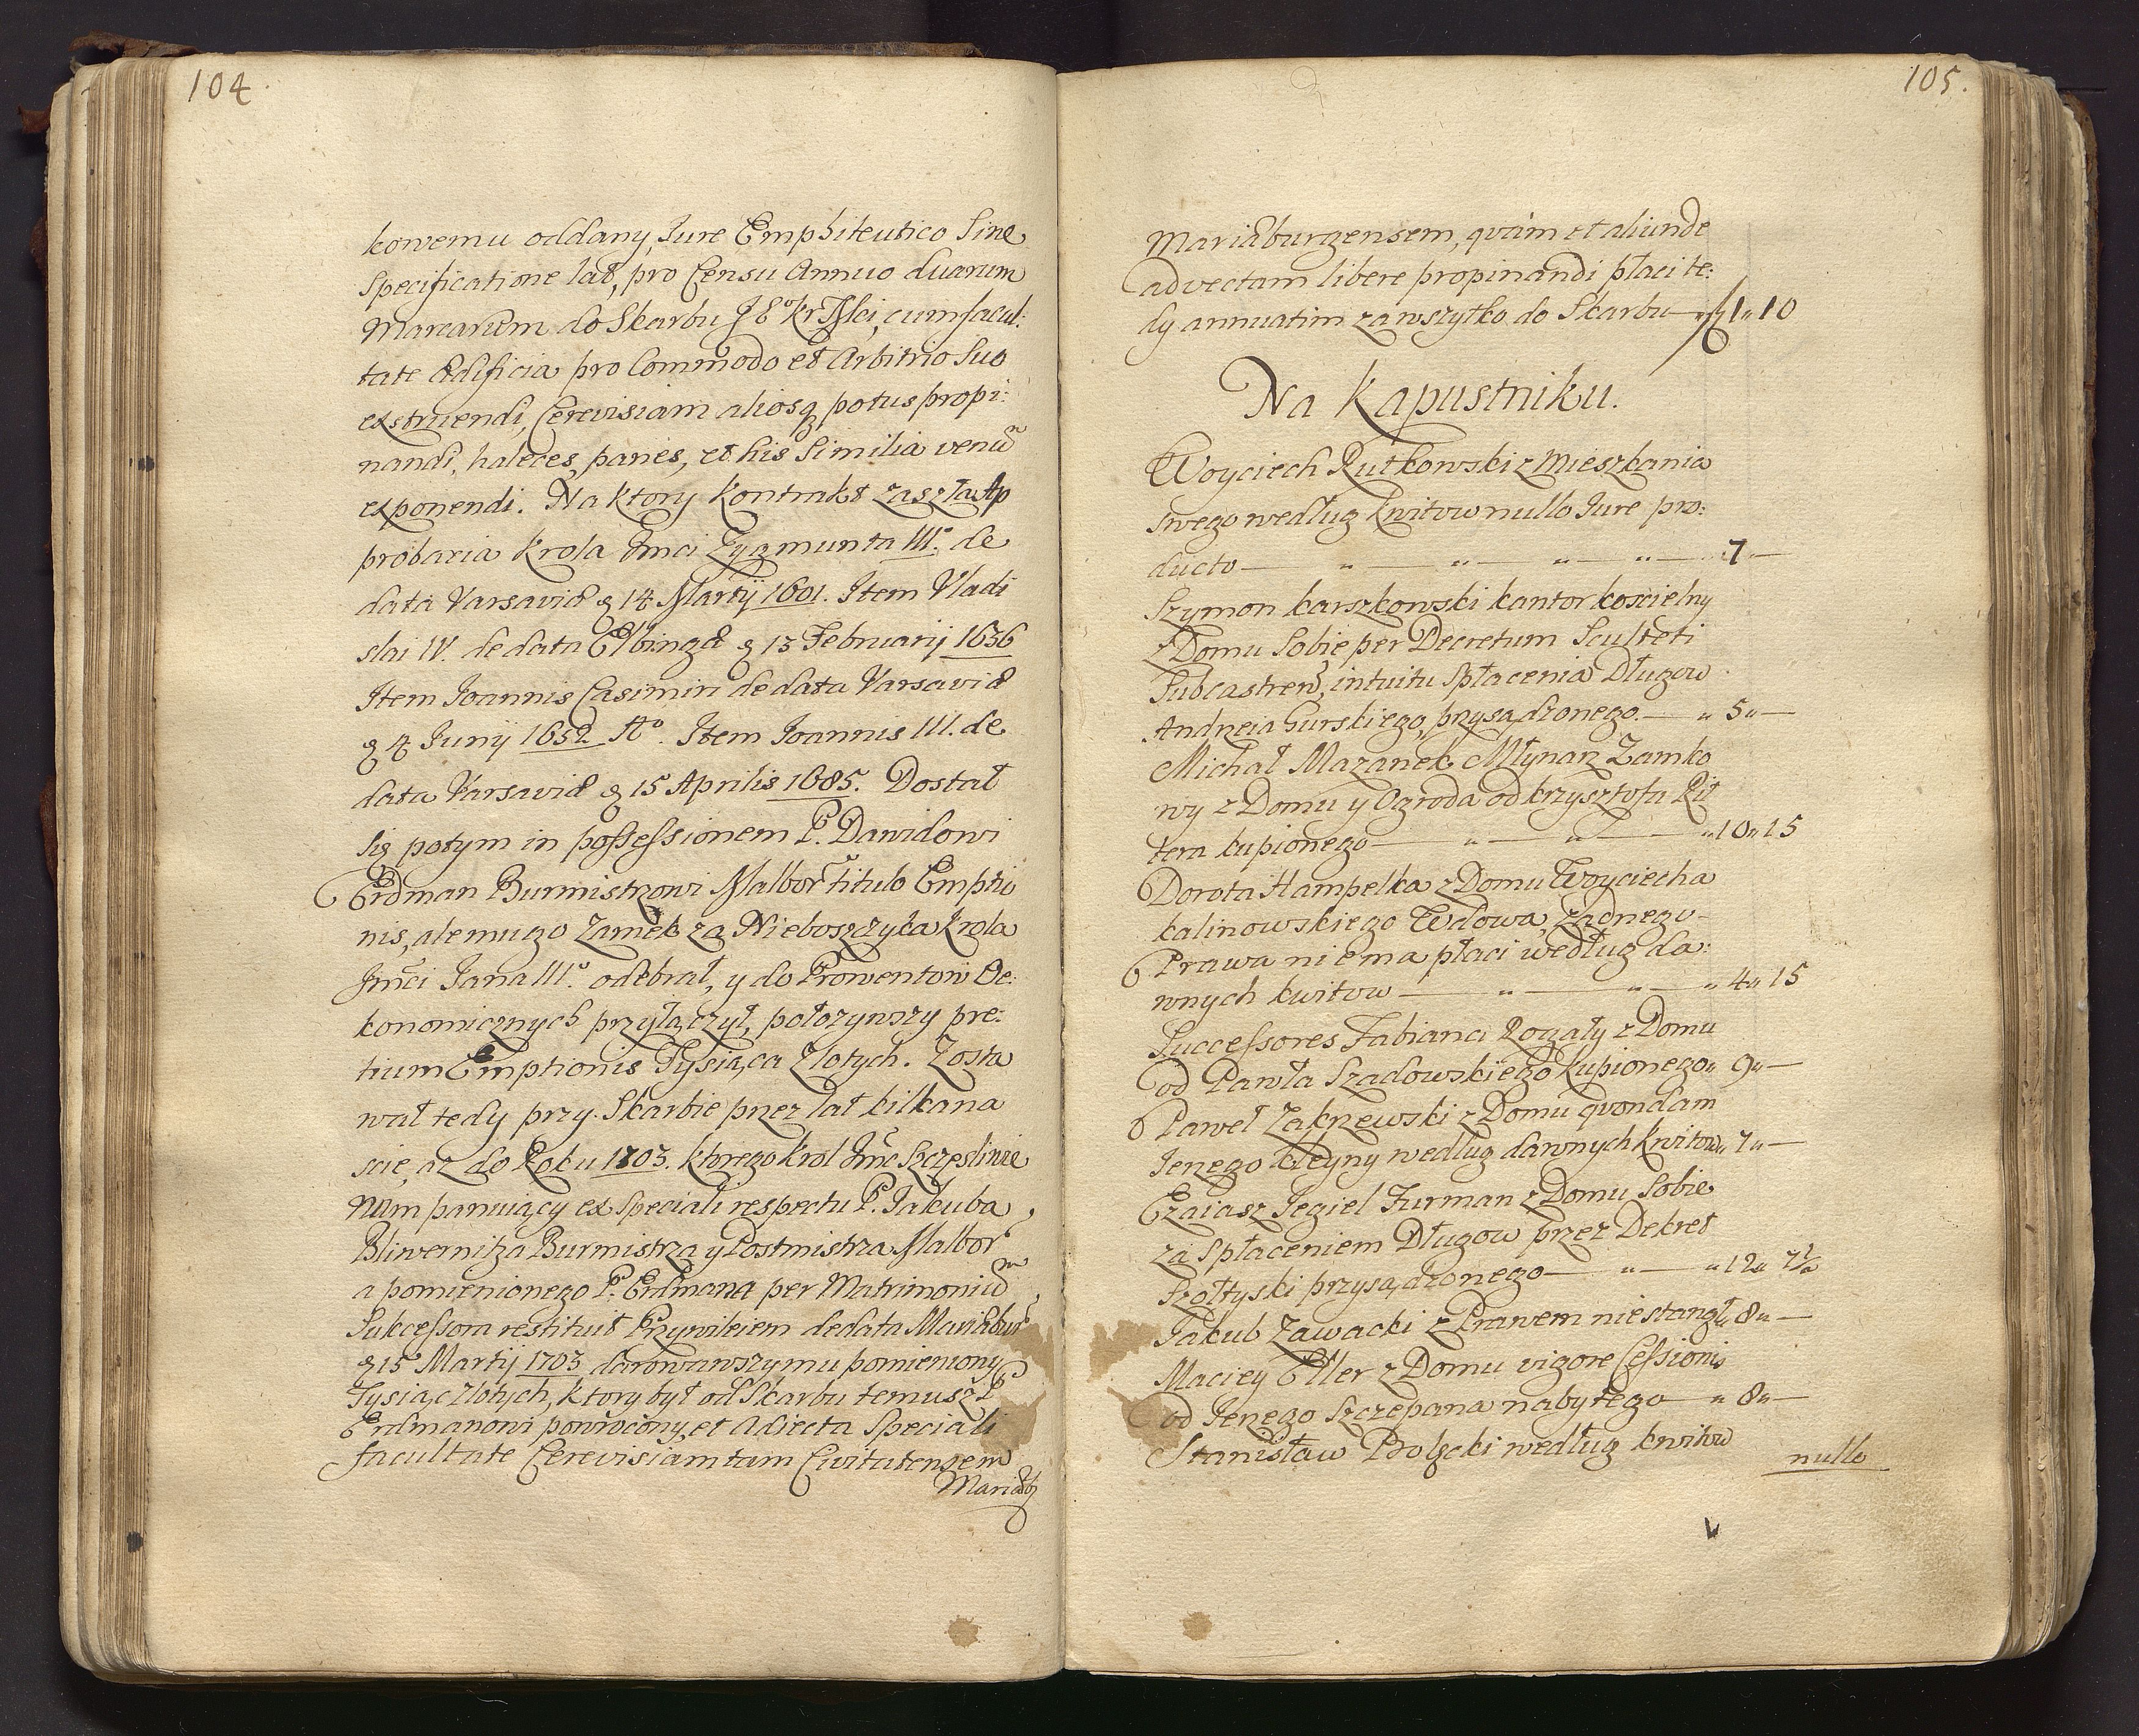 104.
kowemu oddany, Jure Emphiteutico Sine
Specificatione lat, pro Censu Annuo duarum
Marcarum do Skarbu cum facul:
tate Ædificia pro Commodo et Arbitrio Suo
exstruendi, Cerevisiam aliosq potus propi:
nandi, haleces, panes, et his Similia venū
exponendi. Na ktory kontrakt zaszła Ap
probacia krola Jmci Zygmunta III° de
data Varsaviæ 14 Martij 1601. Item Vladi
slai IV. de data Elbingæ 13 Februarij 1636
Item Joannis Casimiri de data Varsaviæ
4 Junij 1652 A°. Item Joannis III. de
data Varsaviæ 15 Aprilis 1685. Dostał
się potym in possessionem P. Dawidowi
Erdman Burmistrzowi Malbor titulo Emptio
nis, ale mu go Zamek za Nieboszczyka krola
Jmci Jana III° odebrał, y do Prowentow Oe:
konomicznych przyłączył, położywszy pre:
tium Emptionis Tysiąca Złotych. Zosta
wał tedy przy Skarbie przez lat kilkana
scie, az do Roku 1703. ktorego krol Jmc Szczęsliwie
nam panuiący ex Speciali respectu P. Jakuba
Bliwernitza Burmistrza y Postmistrza Malbor
a pomienionego P. Erdmana per Matrimoniū
Sukcessora restituit Przywileiem de data Mariæbur
15 Martij 1703 darowawszy mu pomieniony
Tysiąc Złotych, ktory był od Skarbu temusz P
Erdmanowi powrocony, et Adiecta Speciali
facultate Cerevisiam tam Civitatensem
Mariæb
105.
Mariæburgensem, qvàm et aliunde
advectam libere propinandi płaci te:
dy annuatim za wszytko do Skarbu — f 1 „ 10
Na Kapustniku.
Woyciech Rutkowski z Mieszkania
swego według kwitow nullo Jure pro:
ducto — „ — „ — „ — „ — 7 —
Szymon karszkowski kantor koscielny
z Domu Sobie per Decretum Sculteti
Subcastren, intuitu Spłacenia Długow
Andrzeia Gurskiego, przysądzonego. — „ 5 „ —
Michał Mazanek Młynarz Zamko
wy z Domu y Ogroda od krzysztofa Rit
tera kupionego — „ — „ — „ 10 „ 15
Dorota Hampelka z Domu Woyciecha
kalinowskiego Wdowa, żadnego
Prawa niema płaci według da:
wnych kwitow — „ — „ — „ 4 „ 15
Successores Fabiana Rogały z Domu
od Pawła Szadowskiego kupionego „ 9 „ —
Paweł Zakrzewski z Domu qvondam
Jerzego kleyny według dawnych kwitow „ 7 „ —
Ezaiasz Jegiel Furman z Domu Sobie
za Spłaceniem Długow przez Dekret
Szołtyski przysądzonego — „ — „ 12 „ 7½
Jakub Zawacki z Prawem niestanął „ 8 „ —
Maciey Eller z Domu vigore Cessionis
od Jerzego Szczepana nabytego — „ 8 „ —
Stanisław Bolęcki według kwitow
nullo